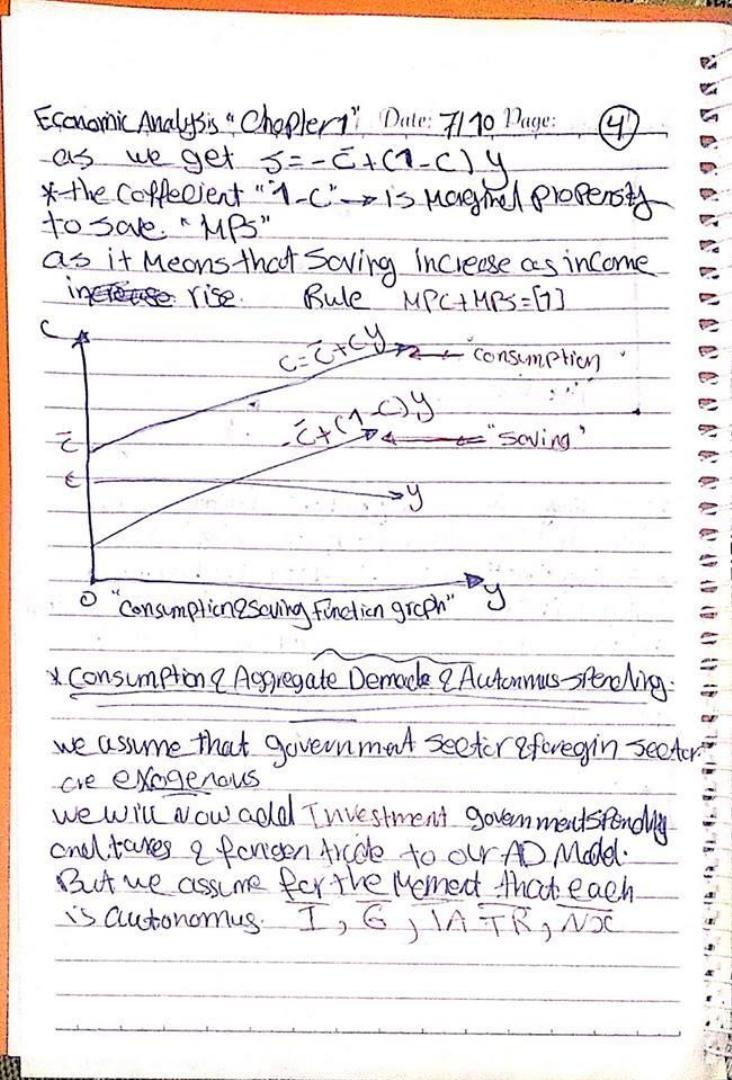 Economic Analysis "Chapter1" Date: 7/10 Page: 4
as we get S=-c̄+(1-C)y
*the Coffecient "1-C"→ is Marginal Propensity
to save. "MPS"
as it Means that Saving increase as income
increase rise. Rule MPC+MPS=[1]
C
C=c̄+cy ← consumption
-c̄+(1-C)y ← "saving"
c̄
y
O "Consumption&Saving function graph" y
* Consumption & Aggregate Demade & Autonmus-spending.
we assume that government seector & foregin seector
are exogenous
we will Now add Investment government spending
and taxes & forigen trade to our AD Model.
But we assume for the Moment that each
is autonomus. I̅, G̅, T̅A̅ T̅R̅, N̅X̅